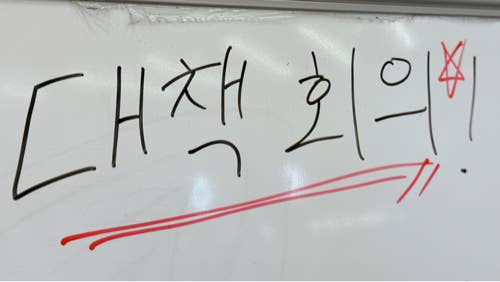 대책 회의!